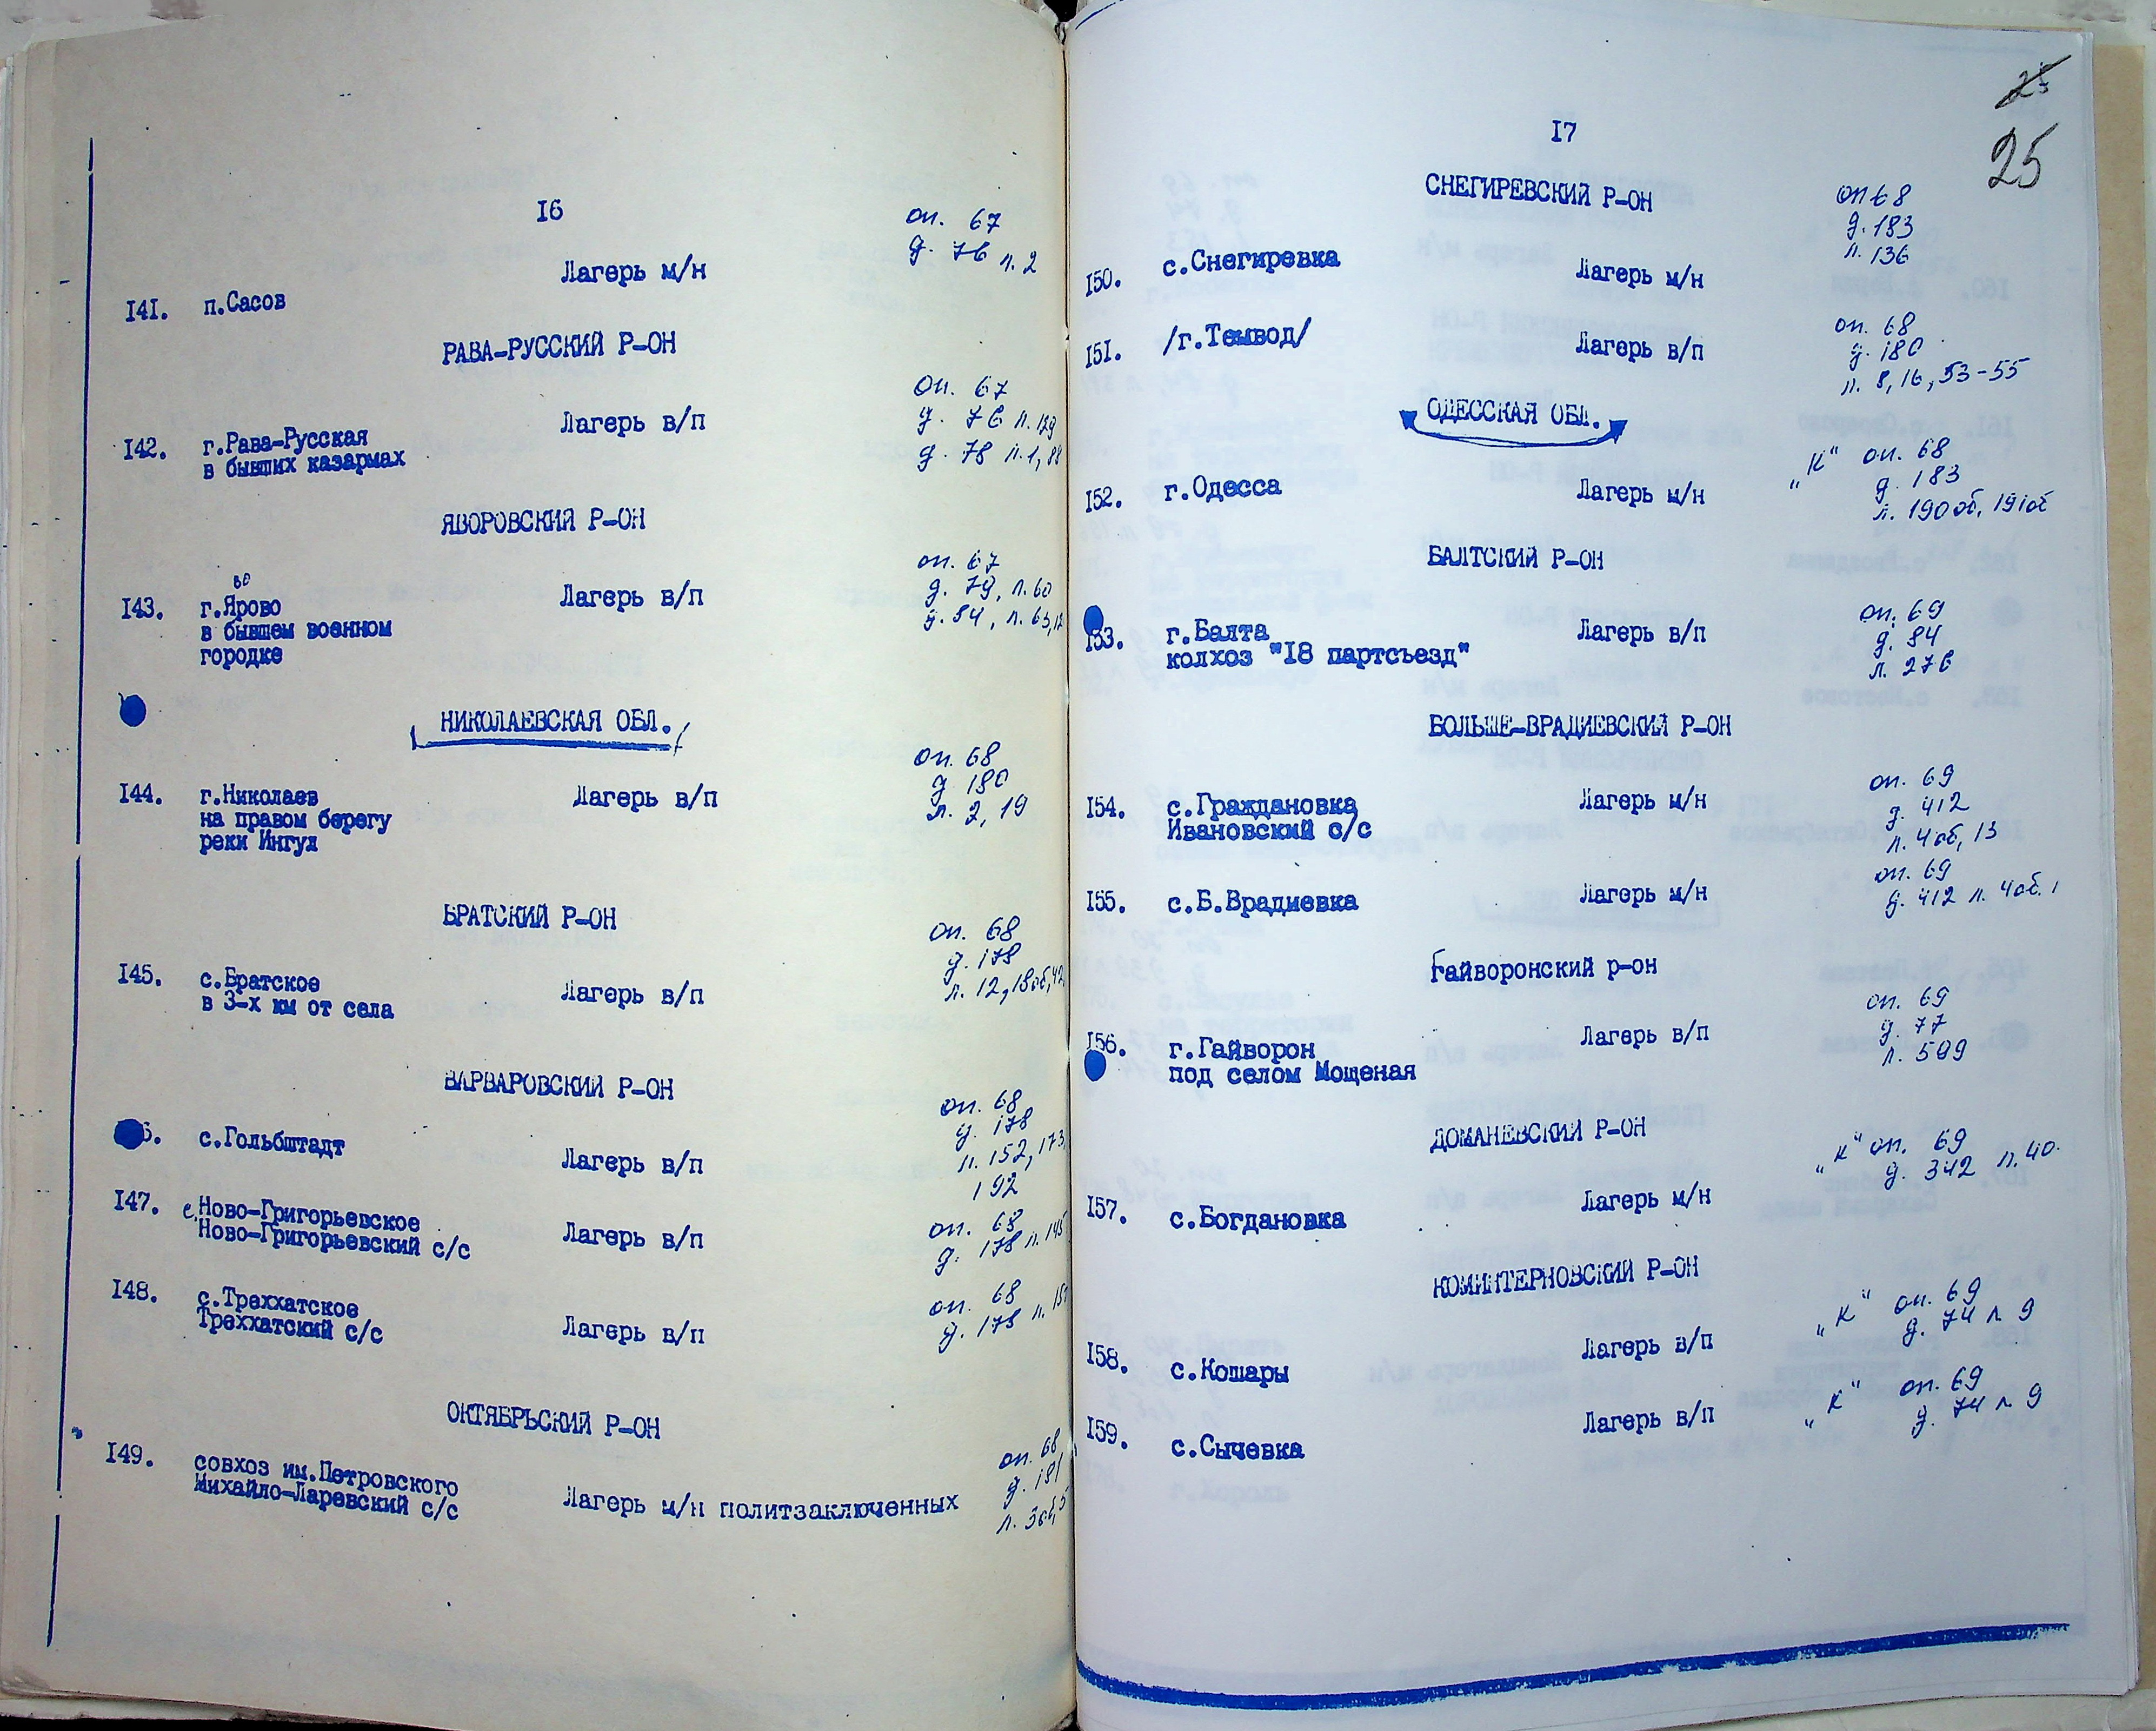 16
оп. 67
д. 76 л. 2
Лагерь м/н
141. п.Сасов
РАВА-РУССКИЙ Р-ОН
оп. 67
Лагерь в/п д. 76 л. 129
142. г.Рава-Русская д. 78 л. 1, 88
в бывших казармах
ЯВОРОВСКИЙ Р-ОН
оп. 67
во
143. г.Ярово Лагерь в/п д. 79, л. 60
в бывшем военном д. 84, л. 63,
городке
НИКОЛАЕВСКАЯ ОБЛ.
оп. 68
144. г.Николаев Лагерь в/п д. 180
на правом берегу л. 2, 19
реки Ингул
БРАТСКИЙ Р-ОН
оп. 68
145. с.Братское Лагерь в/п д. 178
в 3-х км от села л. 12, 18об, 42
ВАРВАРОВСКИЙ Р-ОН
оп. 68
6. с.Гольбштадт д. 178
Лагерь в/п л. 152, 173,
192
147. с.Ново-Григорьевское оп. 68
Ново-Григорьевский с/с Лагерь в/п д. 178 л. 145
148. с.Треххатское оп. 68
Треххатский с/с Лагерь в/п д. 178 л.
ОКТЯБРЬСКИЙ Р-ОН
149. совхоз им.Петровского оп. 68
Михайло-Ларевский с/с Лагерь м/н политзаключенных д. 181
л. 3об, 5
25
17
СНЕГИРЕВСКИЙ Р-ОН
оп 68
д. 183
150. с.Снегиревка Лагерь м/н л. 136
151. /г.Темвод/ Лагерь в/п оп. 68
д. 180
л. 8, 16, 53-55
ОДЕССКАЯ ОБЛ.
„К" оп. 68
152. г.Одесса Лагерь м/н д. 183
л. 190об, 191об
БАЛТСКИЙ Р-ОН
оп. 69
153. г.Балта Лагерь в/п д. 84
колхоз "18 партсъезд" л. 276
БОЛЬШЕ-ВРАДИЕВСКИЙ Р-ОН
оп. 69
154. с.Граждановка Лагерь м/н д. 412
Ивановский с/с л. 4об, 13
оп. 69
155. с.Б.Врадиевка Лагерь м/н д. 412 л. 4об. 1
Гайворонский р-он
оп. 69
156. г.Гайворон Лагерь в/п д. 77
под селом Мощеная л. 599
ДОМАНЕВСКИЙ Р-ОН
„К" оп. 69
д. 342 л. 40.
157. с.Богдановка Лагерь м/н
КОМИНТЕРНОВСКИЙ Р-ОН
„К" оп. 69
д. 74 л 9
158. с.Кошары Лагерь в/п
„К" оп. 69
д. 74 л 9
159. с.Сычевка Лагерь в/п